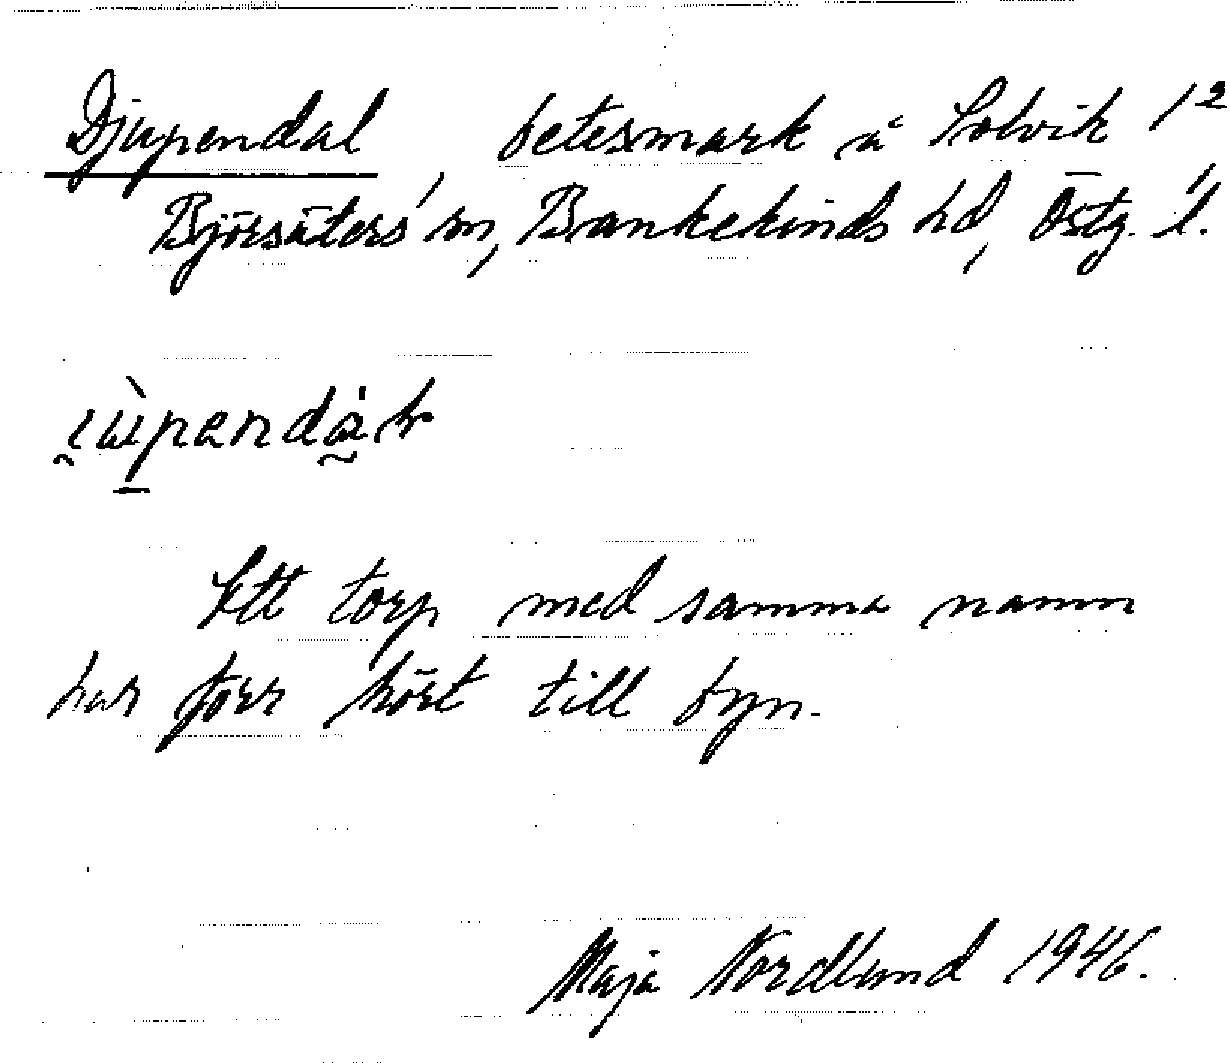 Djupendal, betesmark å Solvik 1²
Björsäters sn, Bankekinds hd, Östg. l.
Ett torp med samma namn
har förr hört till byn.
Maja Nordlund 1946.